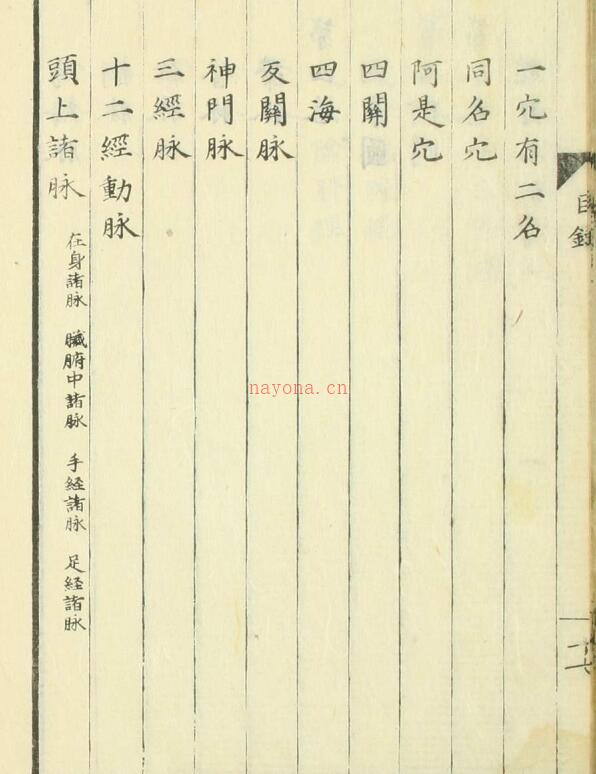 目録
一穴有二名
同名穴
阿是穴
四關
四海
反關脉
神門脉
三經脉
十二經動脉
頭上諸脉 在身諸脉 臓腑中諸脉 手経諸脉 足経諸脉
nayona.cn